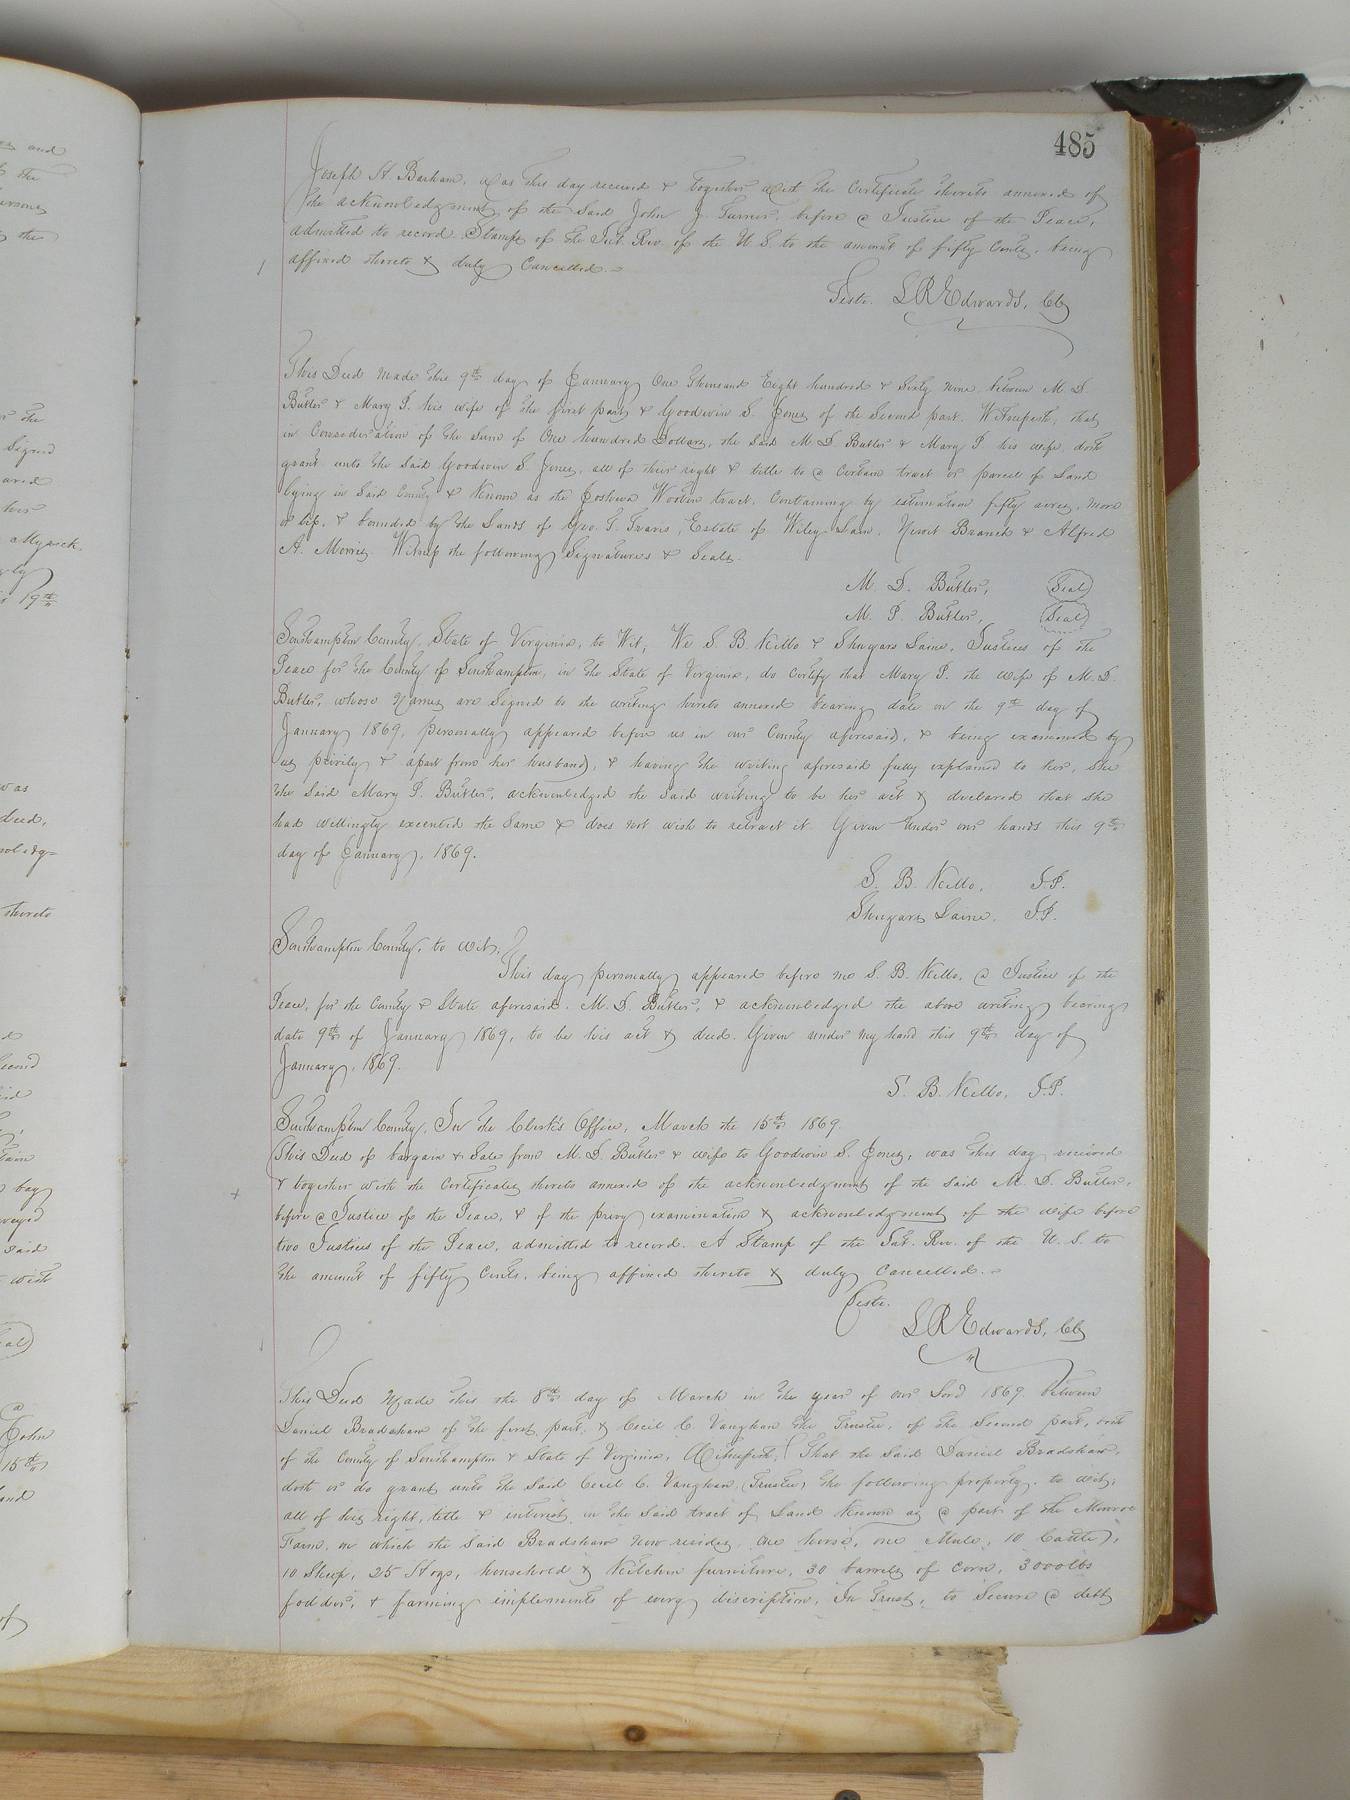 485
Joseph H. Barham, was this day received & together with the Certificate thereto annexed of
the acknowledgment of the said John J. Turner, before a Justice of the Peace,
admitted to record. Stamps of the Int. Rev. of the U. S. to the amount of fifty Cents, being
affixed thereto & duly Cancelled.
Teste. L R Edwards, Clk
This Deed made this 9th day of January One thousand Eight hundred & Sixty nine between M. D.
Butler & Mary P. his wife of the first part & Goodwin S. Jones of the Second part. Witnesseth, that
in Consideration of the Sum of One hundred Dollars, the said M D Butler & Mary P his wife, doth
grant unto the Said Goodwin S. Jones, all of their right & title to a Certain tract or parcel of Land
lying in Said County & Known as the Joshua Wooten tract, Containing by estimation fifty acres, more
or less, & bounded by the Lands of Geo. T. Travis, Estate of Wiley Lain, Newit Branch & Alfred
A. Morris. Witness the following Signatures & Seals.
M. D. Butler, (Seal)
M. P. Butler, (Seal)
Southampton County, State of Virginia, to Wit, We S. B. Kello & Shugars Laine, Justices of the
Peace for the County of Southampton, in the State of Virginia, do Certify that Mary P. the wife of M. D.
Butler, whose Names are Signed to the writing hereto annexed bearing date on the 9th day of
January 1869, personally appeared before us in our County aforesaid, & being examined by
us privily & apart from her husband, & having the writing aforesaid fully explained to her, She
the Said Mary P. Butler, acknowledged the said writing to be her act & declared that she
had willingly executed the Same & does not wish to retract it. Given under our hands this 9th
day of January, 1869.
S. B. Kello, J.P.
Shugars Laine, J.P.
Southampton County, to wit,
This day personally appeared before me S. B. Kello, a Justice of the
Peace, for the County & State aforesaid. M. D. Butler, & acknowledged the above writing bearing
date 9th of January 1869, to be his act & deed. Given under my hand this 9th day of
January, 1869.
S. B. Kello, J.P.
Southampton County, In the Clerk's Office, March the 15th 1869.
This Deed of bargain & Sale from M. D. Butler & wife to Goodwin S. Jones, was this day received
& together with the Certificates thereto annexed of the acknowledgment of the said M. D. Butler,
before a Justice of the Peace, & of the privy examination & acknowledgment of the wife before
two Justices of the Peace, admitted to record. A Stamp of the Int. Rev. of the U. S. to
the amount of fifty Cents, being affixed thereto & duly Cancelled.
Teste.
L R Edwards, Clk
This Deed Made this the 8th day of March in the year of our Lord 1869, between
Daniel Bradshaw of the first part, & Cecil C. Vaughan the Trustee, of the Second part, both
of the County of Southampton & State of Virginia, Witnesseth, That the said Daniel Bradshaw,
doth or do grant unto the Said Cecil C. Vaughan, (Trustee) the following property, to wit,
all of his right, title & interest in the Said tract of Land Known as a part of the Monroe
Farm, on which the said Bradshaw now resides. One horse, one Mule, 10 Cattle,
10 Sheep, 25 Hogs, household & Kitchen furniture, 30 barrels of Corn, 3000 lbs
fodder, & farming implements of every discription, In Trust, to Secure a debt